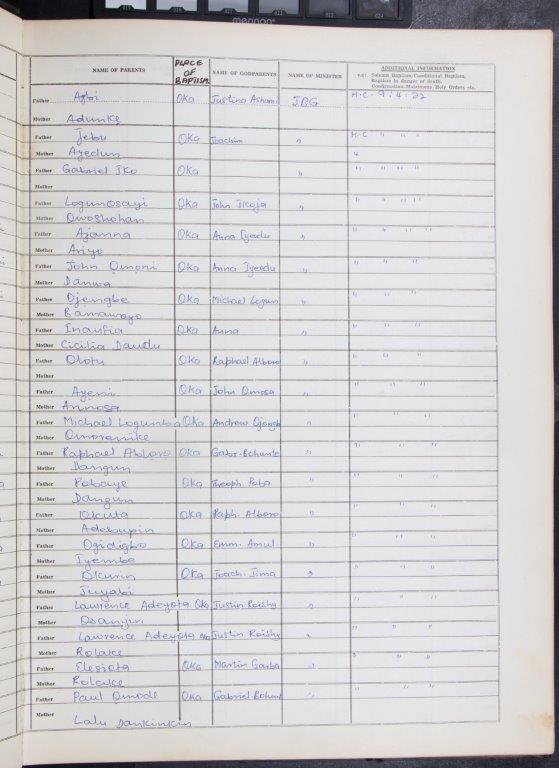 mennon
NAME OF PARENTS PLACE OF BAPTISM NAME OF GODPARENTS NAME OF MINISTER ADDITIONAL INFORMATION
e.g: Solemn Baptism/Conditional Baptism,
Baptism in danger of death,
Confirmation/Matrimony/Holy Orders etc.
Father Agbi OKa Justina Ashami JBG H.C. 9.4.22
Mother Adunke
Father Jebu OKa Joachim " H.C " " "
Mother Ayedun "
Father Gabriel Iko OKa " " " " "
Mother
Father Logunosayi OKa John Ikoja " " " " "
Mother Owoshohan
Father Ajanna OKa Anna Iyeadu " " " " "
Mother Ariyo
Father John Omoni OKa Anna Iyeadu " " " "
Mother Danwa
Father Ojengbe OKa Michael Logun " " " "
Mother Bamawoyo
Father OKa Anna " " " "
Mother Cicilia Daudu
Father Olotu OKa Raphael Alboro " " " "
Mother
Father Ayeni OKa John Omosa " " " "
Mother Annosa
Father Michael Logumba OKa Andrew " " " "
Mother Omoremike
Father Raphael Abloro OKa Gabr. Bohunto " " " "
Mother Dangun
Father Pabaye OKa Theoph. Paba " " " "
Mother Dangun
Father Okuta OKa Raph. Alboro " " " "
Mother Adebupin
Father Ogidigbo OKa Emm. Amul " " " "
Mother Iyembe
Father Okurin OKa Joach. Jima " " " "
Mother Juyabi
Father Lawrence Adeyota OKa Justin Roishy " " " "
Mother Osanyin
Father Lawrence Adeyota OKa Justin Roishy " " " "
Mother Rolake
Father Elegiota OKa Martin Garba " " " "
Mother Rolake
Father Paul Omode OKa Gabriel Bohunt " " " "
Mother Lalu Dankinkin